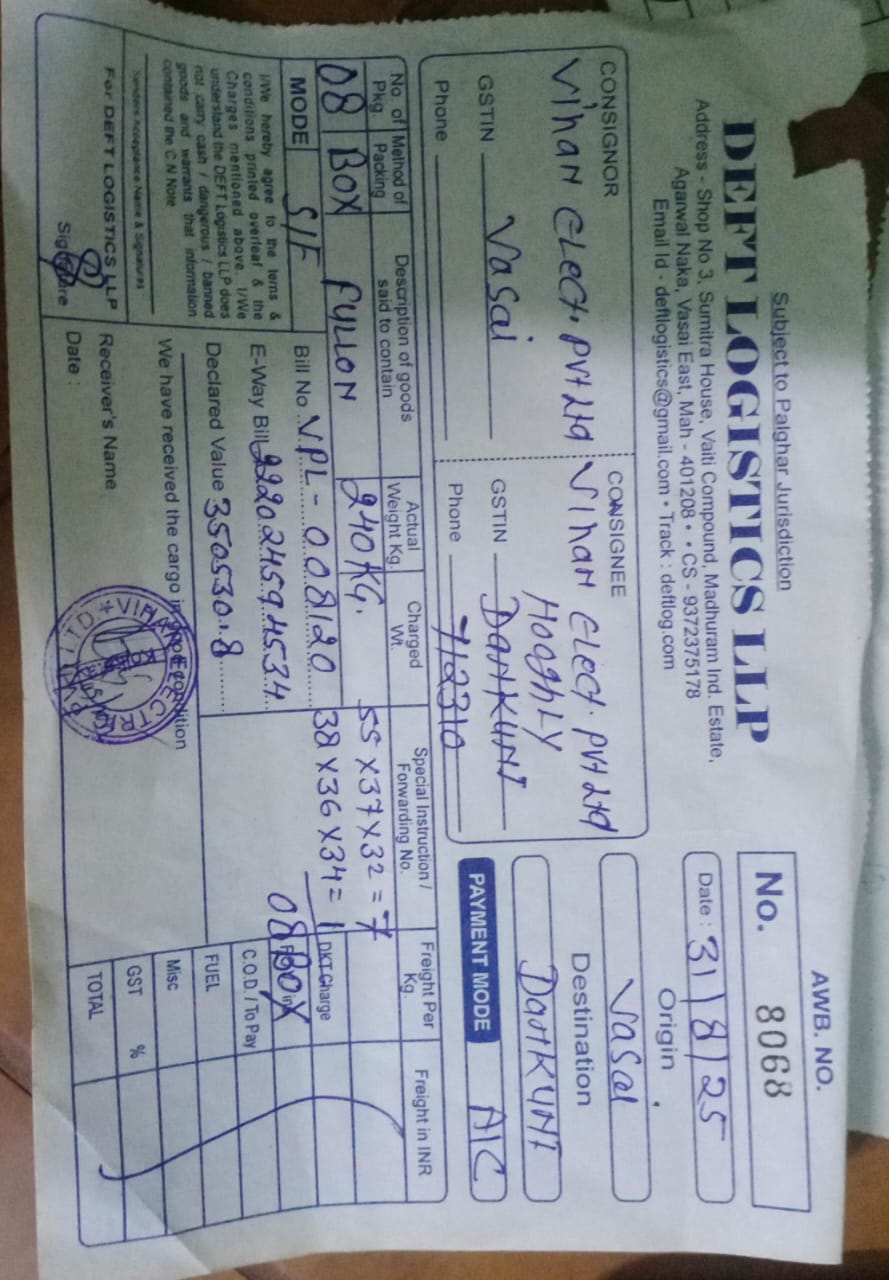 Subject to Palghar Jurisdiction
DEFT LOGISTICS LLP
Address - Shop No 3, Sumitra House, Vaiti Compound, Madhuram Ind. Estate,
Agarwal Naka, Vasai East, Mah - 401208 • • CS - 9372375178
Email Id - deftlogistics@gmail.com • Track : deftlog.com
AWB. NO.
No. 8068
Date : 31/8/25
Origin
Vasai
Destination
DANKUNI
PAYMENT MODE A/C
CONSIGNOR
Vihan Elect. Pvt Ltd
GSTIN Vasai
Phone
CONSIGNEE
Vihan Elect. Pvt Ltd
HOOGHLY
GSTIN DANKUNI
Phone 712310
No. of Pkg.
Method of Packing
Description of goods said to contain
Actual Weight Kg.
Charged Wt.
Special Instruction / Forwarding No.
Freight Per Kg.
Freight in INR
08 BOX FULLON 240 KG.
55 X 37 X 32 = 7
38 X 36 X 34 = 1
08 BOX
MODE S/F
Bill No. VPL - 008120
E-Way Bill 222024594534
Declared Value 350530.8
DKT Charge
C.O.D. / To Pay
FUEL
Misc
GST %
TOTAL
I/We hereby agree to the tems &
conditions printed overleaf & the
Charges mentioned above. I/We
understand the DEFT Logistics LLP does
not carry cash / dangerous / banned
goods and warrants that information
contained the C.N Note
Senders Acceptance Name & Signatures
For DEFT LOGISTICS LLP
Signature
We have received the cargo in good condition
Receiver's Name
Date :
VIHAN ELECTRI
PVT. LTD